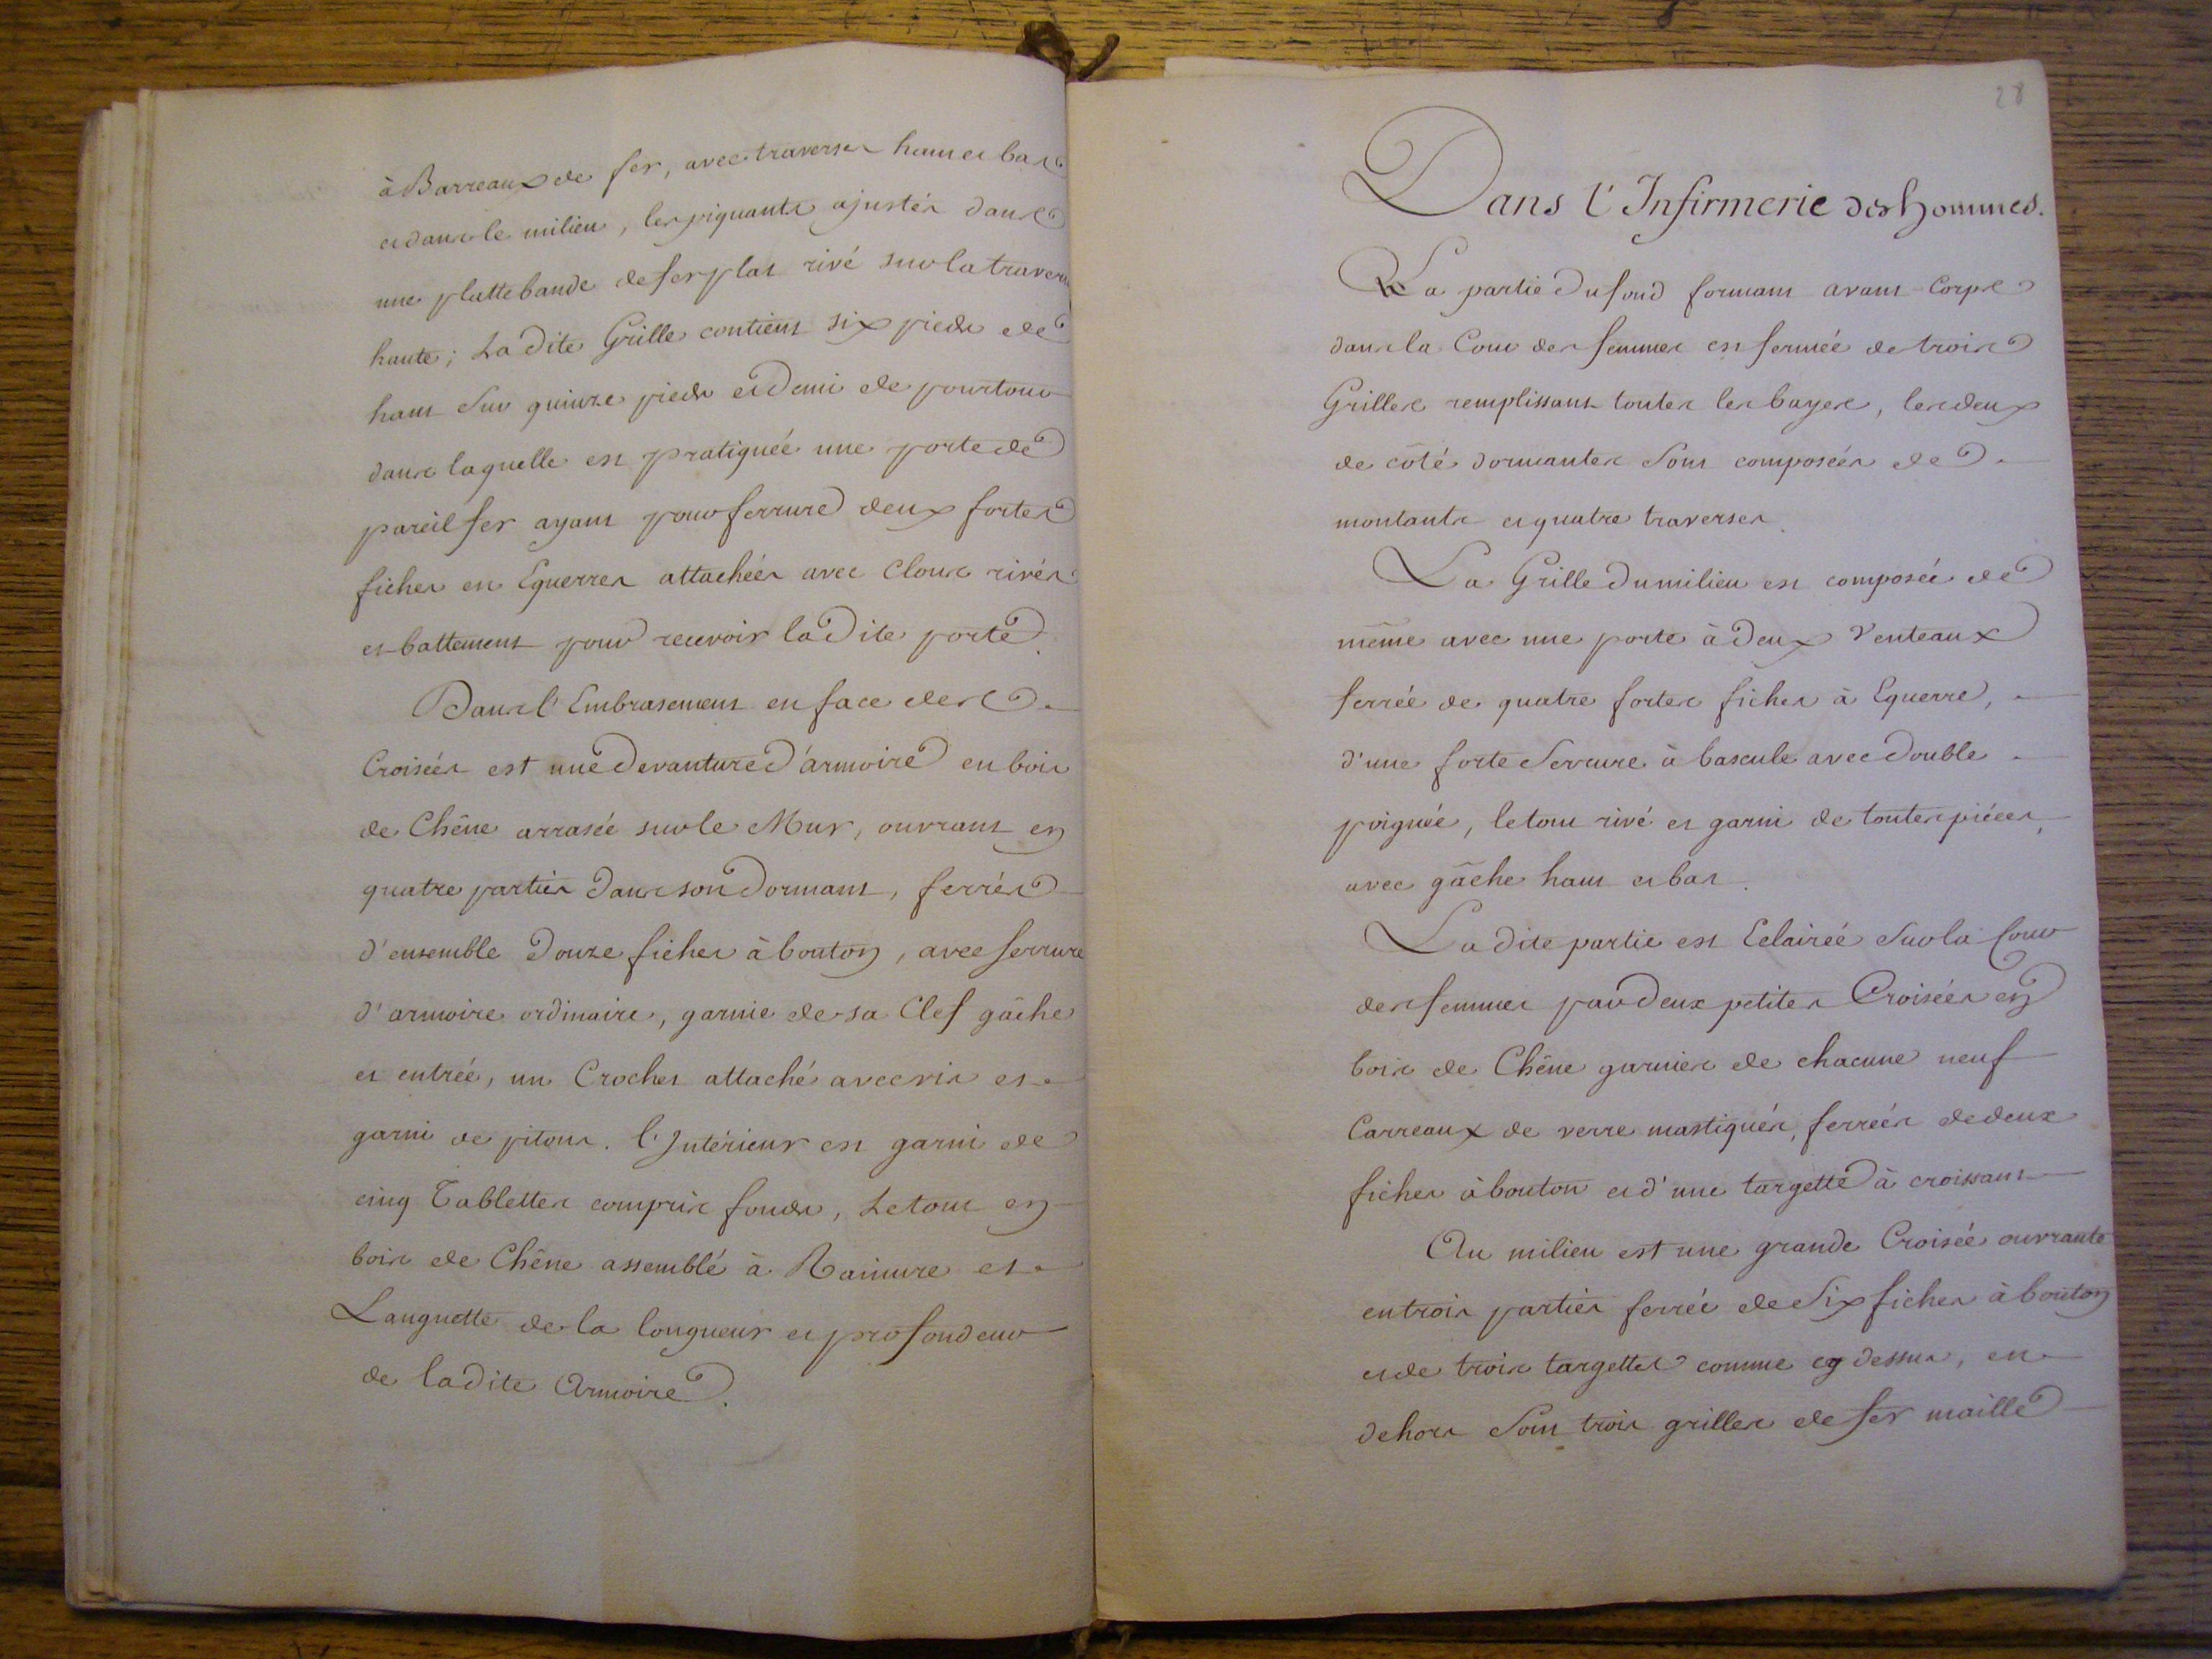 à Barreaux de fer, avec traverses haut et bas
et dans le milieu, les piquants ajustés dans
une platte bande de fer plat rivé sur la traverse
haute ; La dite Grille contient six pieds de
haut Sur quinze pieds et Demi de pourtour
dans laquelle est pratiquée une porte de
pareil fer ayant pour ferrure deux fortes
fiches en Equerres attachées avec Cloux rivés
et battement pour recevoir la Dite porte.
Dans l'Embrasement en face des
Croisées est une Devanture d'armoire en bois
de Chêne arrasée sur le Mur, ouvrant en
quatre parties Dans son Dormant, ferrés
d'ensemble Douze fiches à bouton, avec serrure
d'armoire ordinaire, garnie de sa Clef gâche
et entrée, un Crochet attaché avec vis et
garni de pitons. l'Intérieur est garni de
cinq Tablettes compris fonds, Le tout en
bois de Chêne assemblé à Rainure et
Languette de la longueur et profondeur
de la Dite Armoire.
28
Dans l'Infirmerie des hommes.
La partie Du fond formant avant-Corps
dans la Cour des femmes est fermée de trois
Grilles remplissant toutes les bayes, les deux
de côté dormantes Sont composées de
montants et quatre traverses.
La Grille Du milieu est composée de
même avec une porte à Deux Venteaux
ferrée de quatre fortes fiches à Equerre,
d'une forte Serrure à bascule avec Double
poignée, le tout rivé et garni de toutes pièces,
avec gâche haut et bas.
La dite partie est Eclairée Sur la Cour
des femmes par Deux petites Croisées en
bois de Chêne garnies de chacune neuf
Carreaux de verre mastiqués, ferrées de deux
fiches à bouton et d'une targette à croissant
Au milieu est une grande Croisée ouvrante
en trois parties ferrée de Six fiches à bouton
et de trois targettes comme cy dessus, en
dehors Sont trois grilles de fer maillé